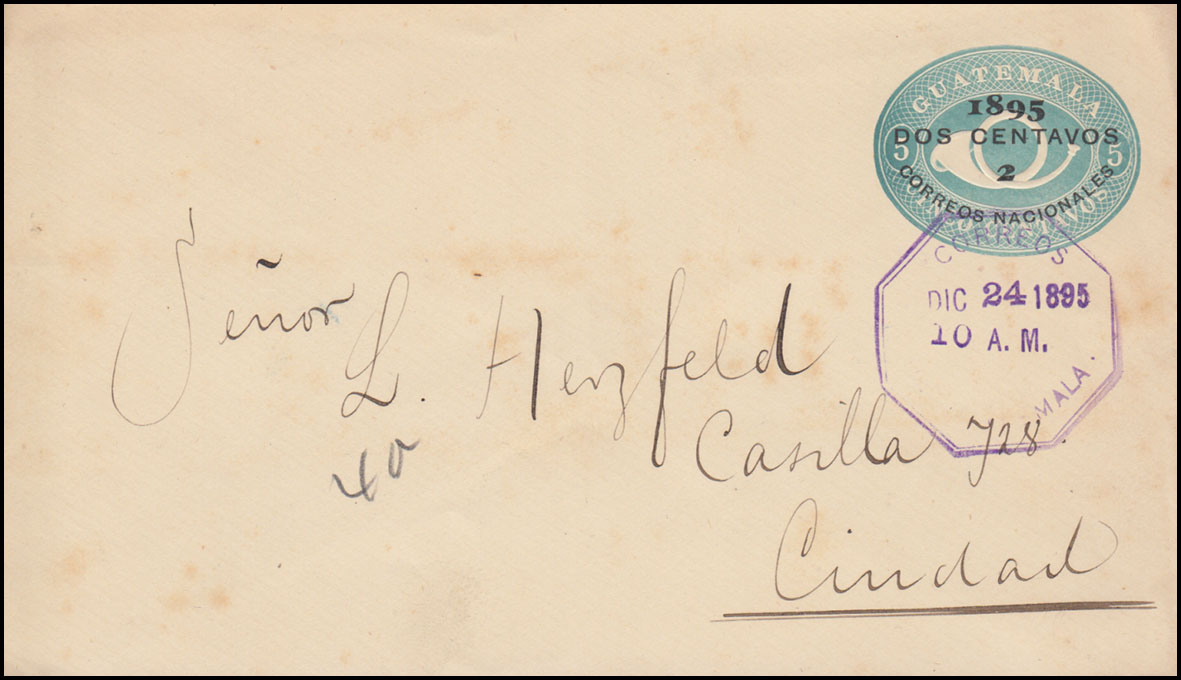 GUATEMALA
1895
DOS CENTAVOS
5 5
2
CORREOS NACIONALES
CORREOS
DIC 24 1895
10 A. M.
MALA.
Señor
L. Herzfeld
Casilla 728.
Ciudad